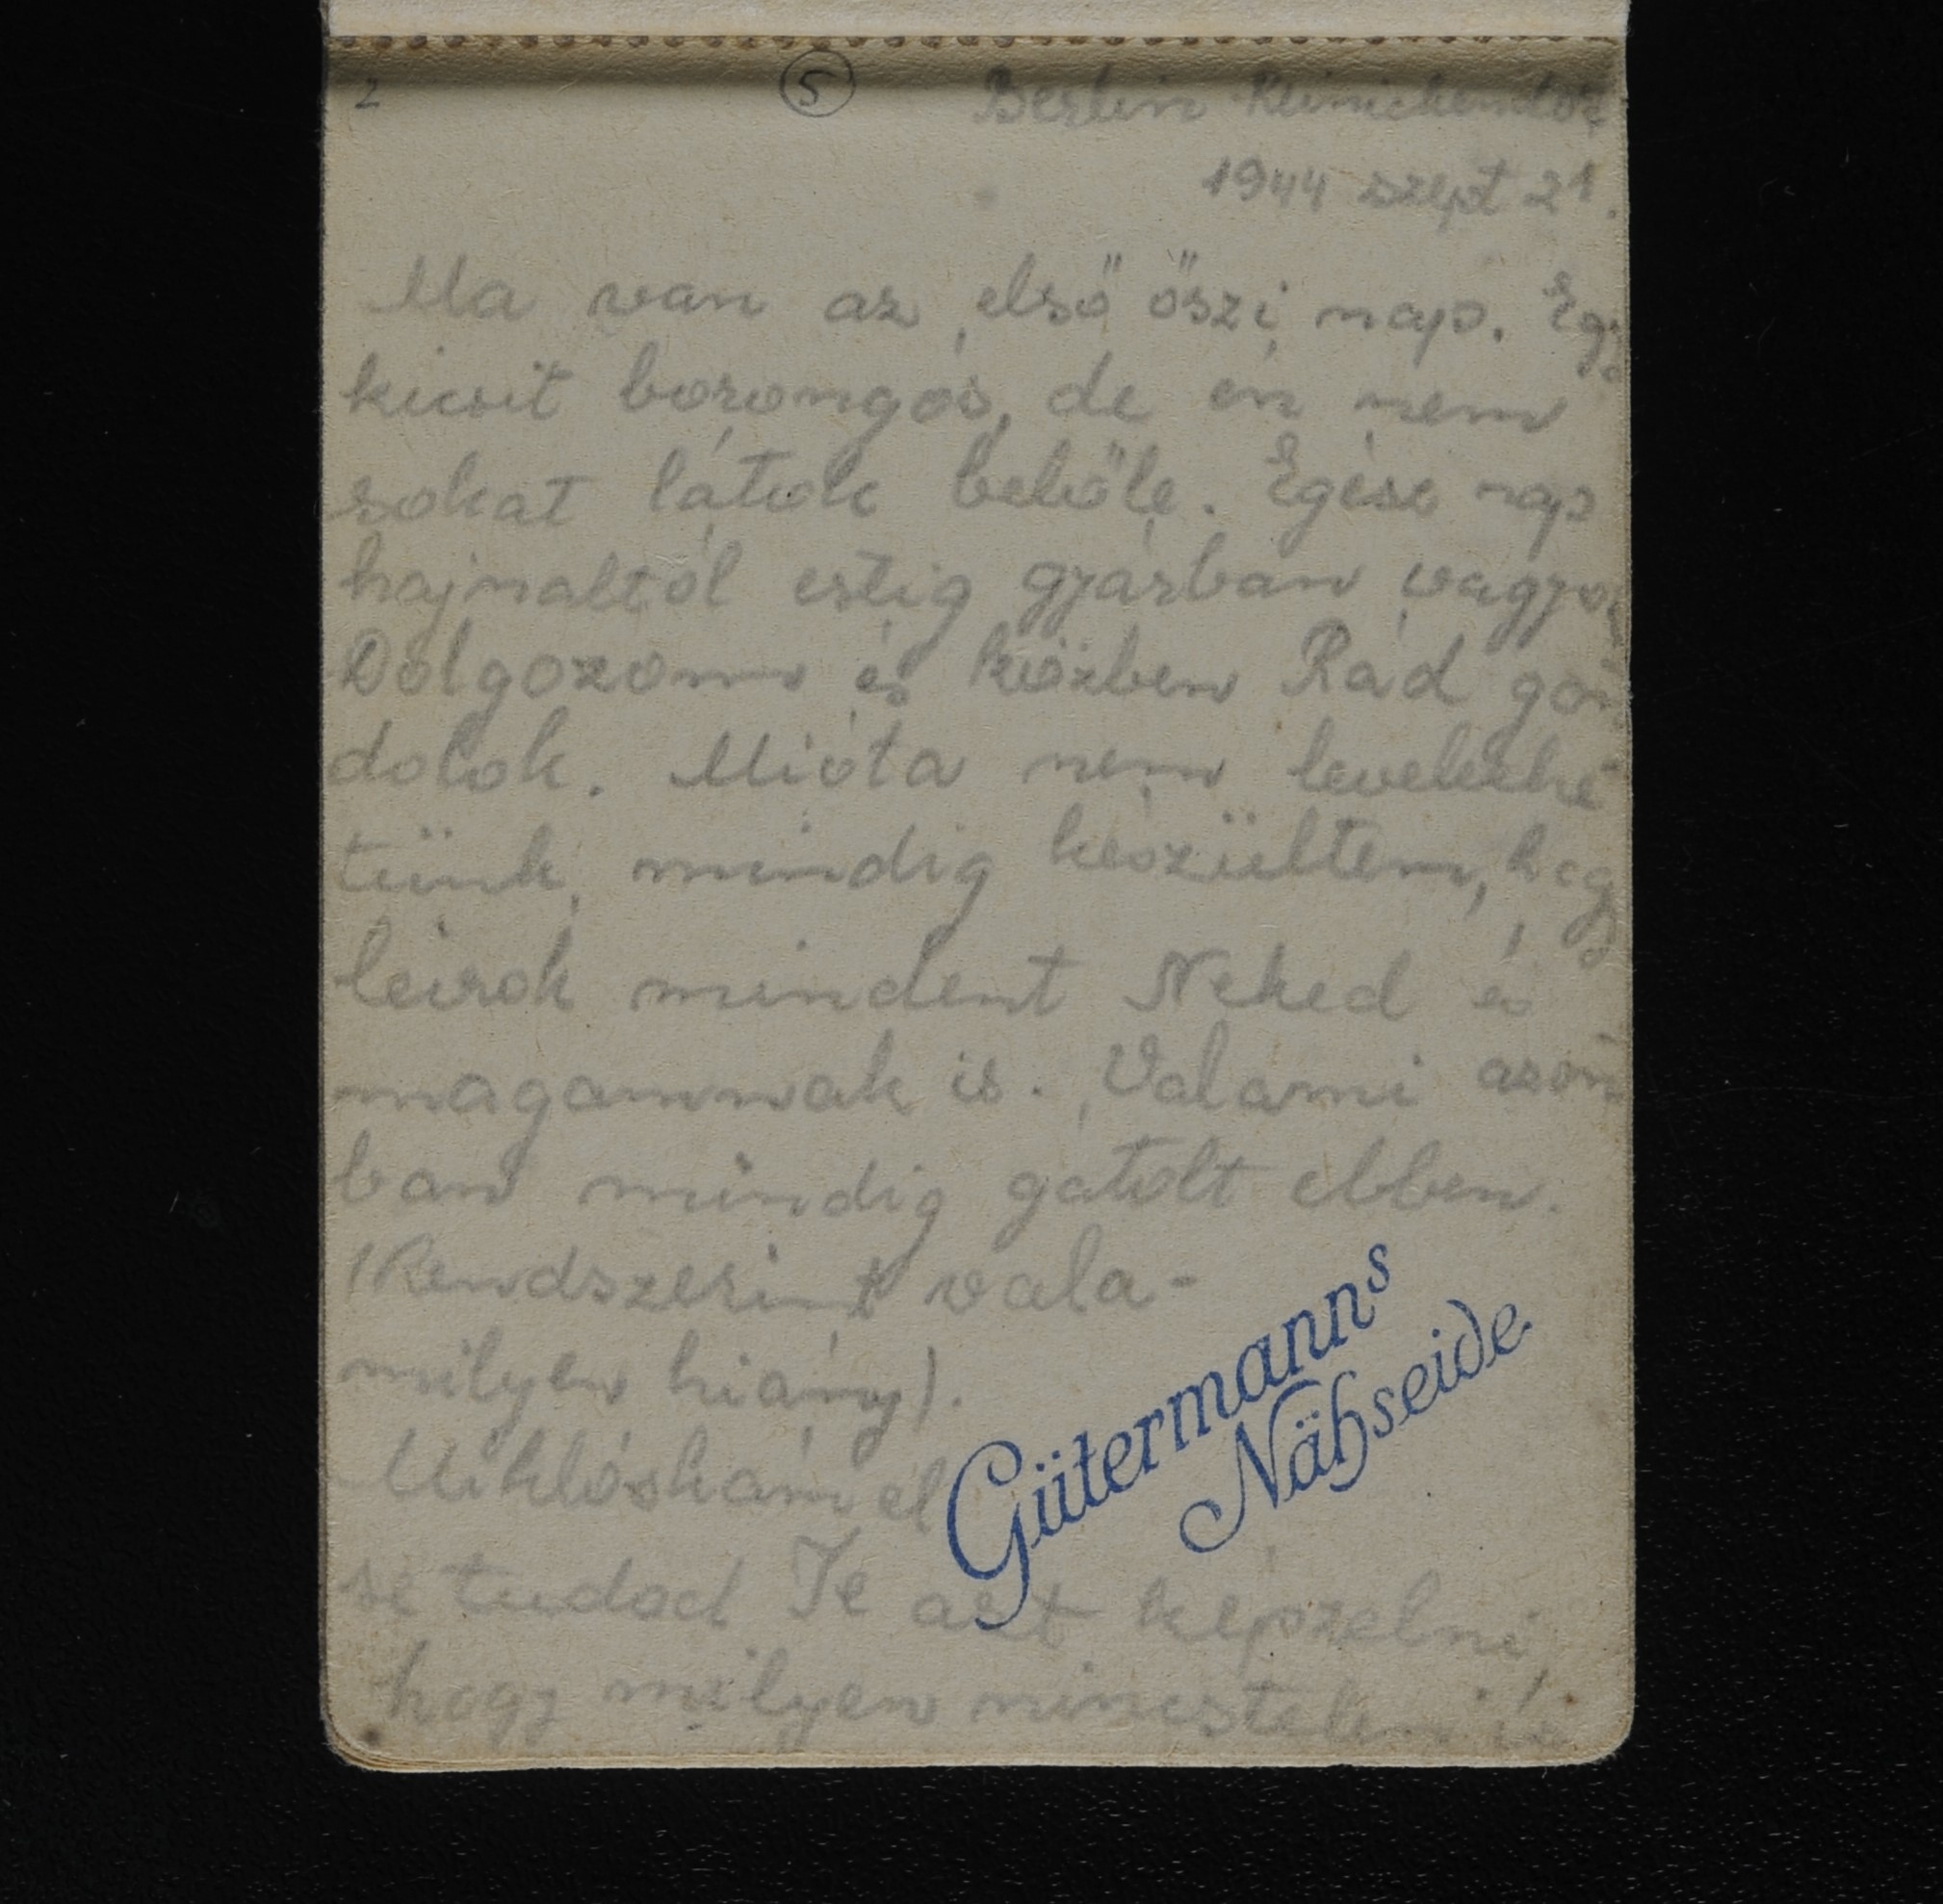 2 5 Berlin Reinickendorf
1944 szept 21.
Ma van az első őszi nap. Egy
kicsit borongós, de én nem
sokat látok belőle. Egész nap
hajnaltól estig gyárban vagyo
Dolgozom és közben Rád gon
dolok. Mióta nem levelezhe
tünk, mindig készültem, hogy
leirok mindent Neked és
magamnak is. Valami azon
ban mindig gátolt ebben.
(Rendszerint vala-
milyen hiány).
Miklóskám el
se tudod Te azt képzelni,
hogy milyen nincstelen is
Gütermanns
Nähseide